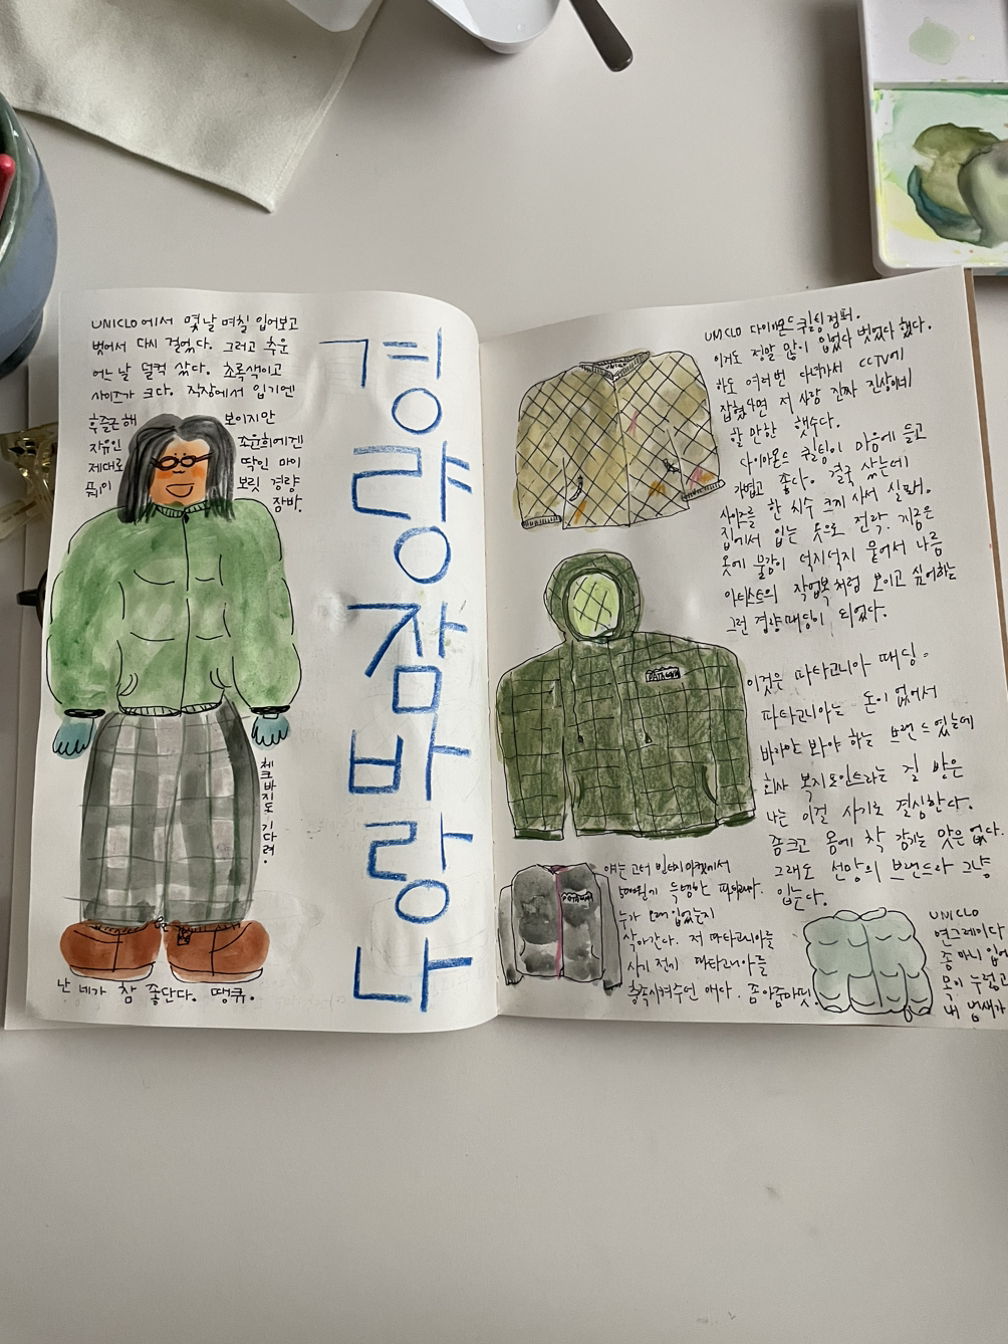 UNICLO에서 몇날 며칠 입어보고
벗어서 다시 걸었다. 그리고 추운
어느 날 덜컥 샀다. 초록색이고
사이즈가 크다. 직장에서 입기엔
후줄근해 보이지만
자유인 조윤희에겐
제대로 딱인 마이
훼이보릿 경량
잠바.
체크바지도 기다려.
난 네가 참 좋단다. 땡큐.
경량잠바랑나
UNICLO 다이아몬드 퀼팅점퍼.
이거도 정말 많이 입었다 벗었다 했다.
하도 여러번 다녀가서 CCTV에
잡혔다면 저 사람 진짜 진상이네
할 만한 했다.
다이아몬드 퀼팅이 마음에 들고
가볍고 좋다. 결국 샀는데
사이즈를 한 치수 크게 사서 실패.
집에서 입는 옷으로 전락. 지금은
옷에 물감이 덕지덕지 묻어서 나름
아티스트의 작업복처럼 보이고 싶어하는
그런 경량패딩이 되었다.
이것은 파타고니아 패딩.
파타고니아는 돈이 없어서
바라만 봐야 하는 브랜드였는데
회사 복지포인트라는 걸 받은
나는 이걸 사기로 결심한다.
좀 크고 몸에 착 감기는 맛은 없다.
그래도 선망의 브랜드라 그냥
입는다.
PATAGONIA
얘는 고터 빈티지마켓에서
득템한 파타고니아.
누가 오래 입었는지
삭아간다. 저 파타고니아를
사기 전에 파타고니아를
충족시켜주던 애다. 좀 아줌마핏.
UNICLO
연그레이다
좀 많이 입어
목이 누렇고
내 냄새가